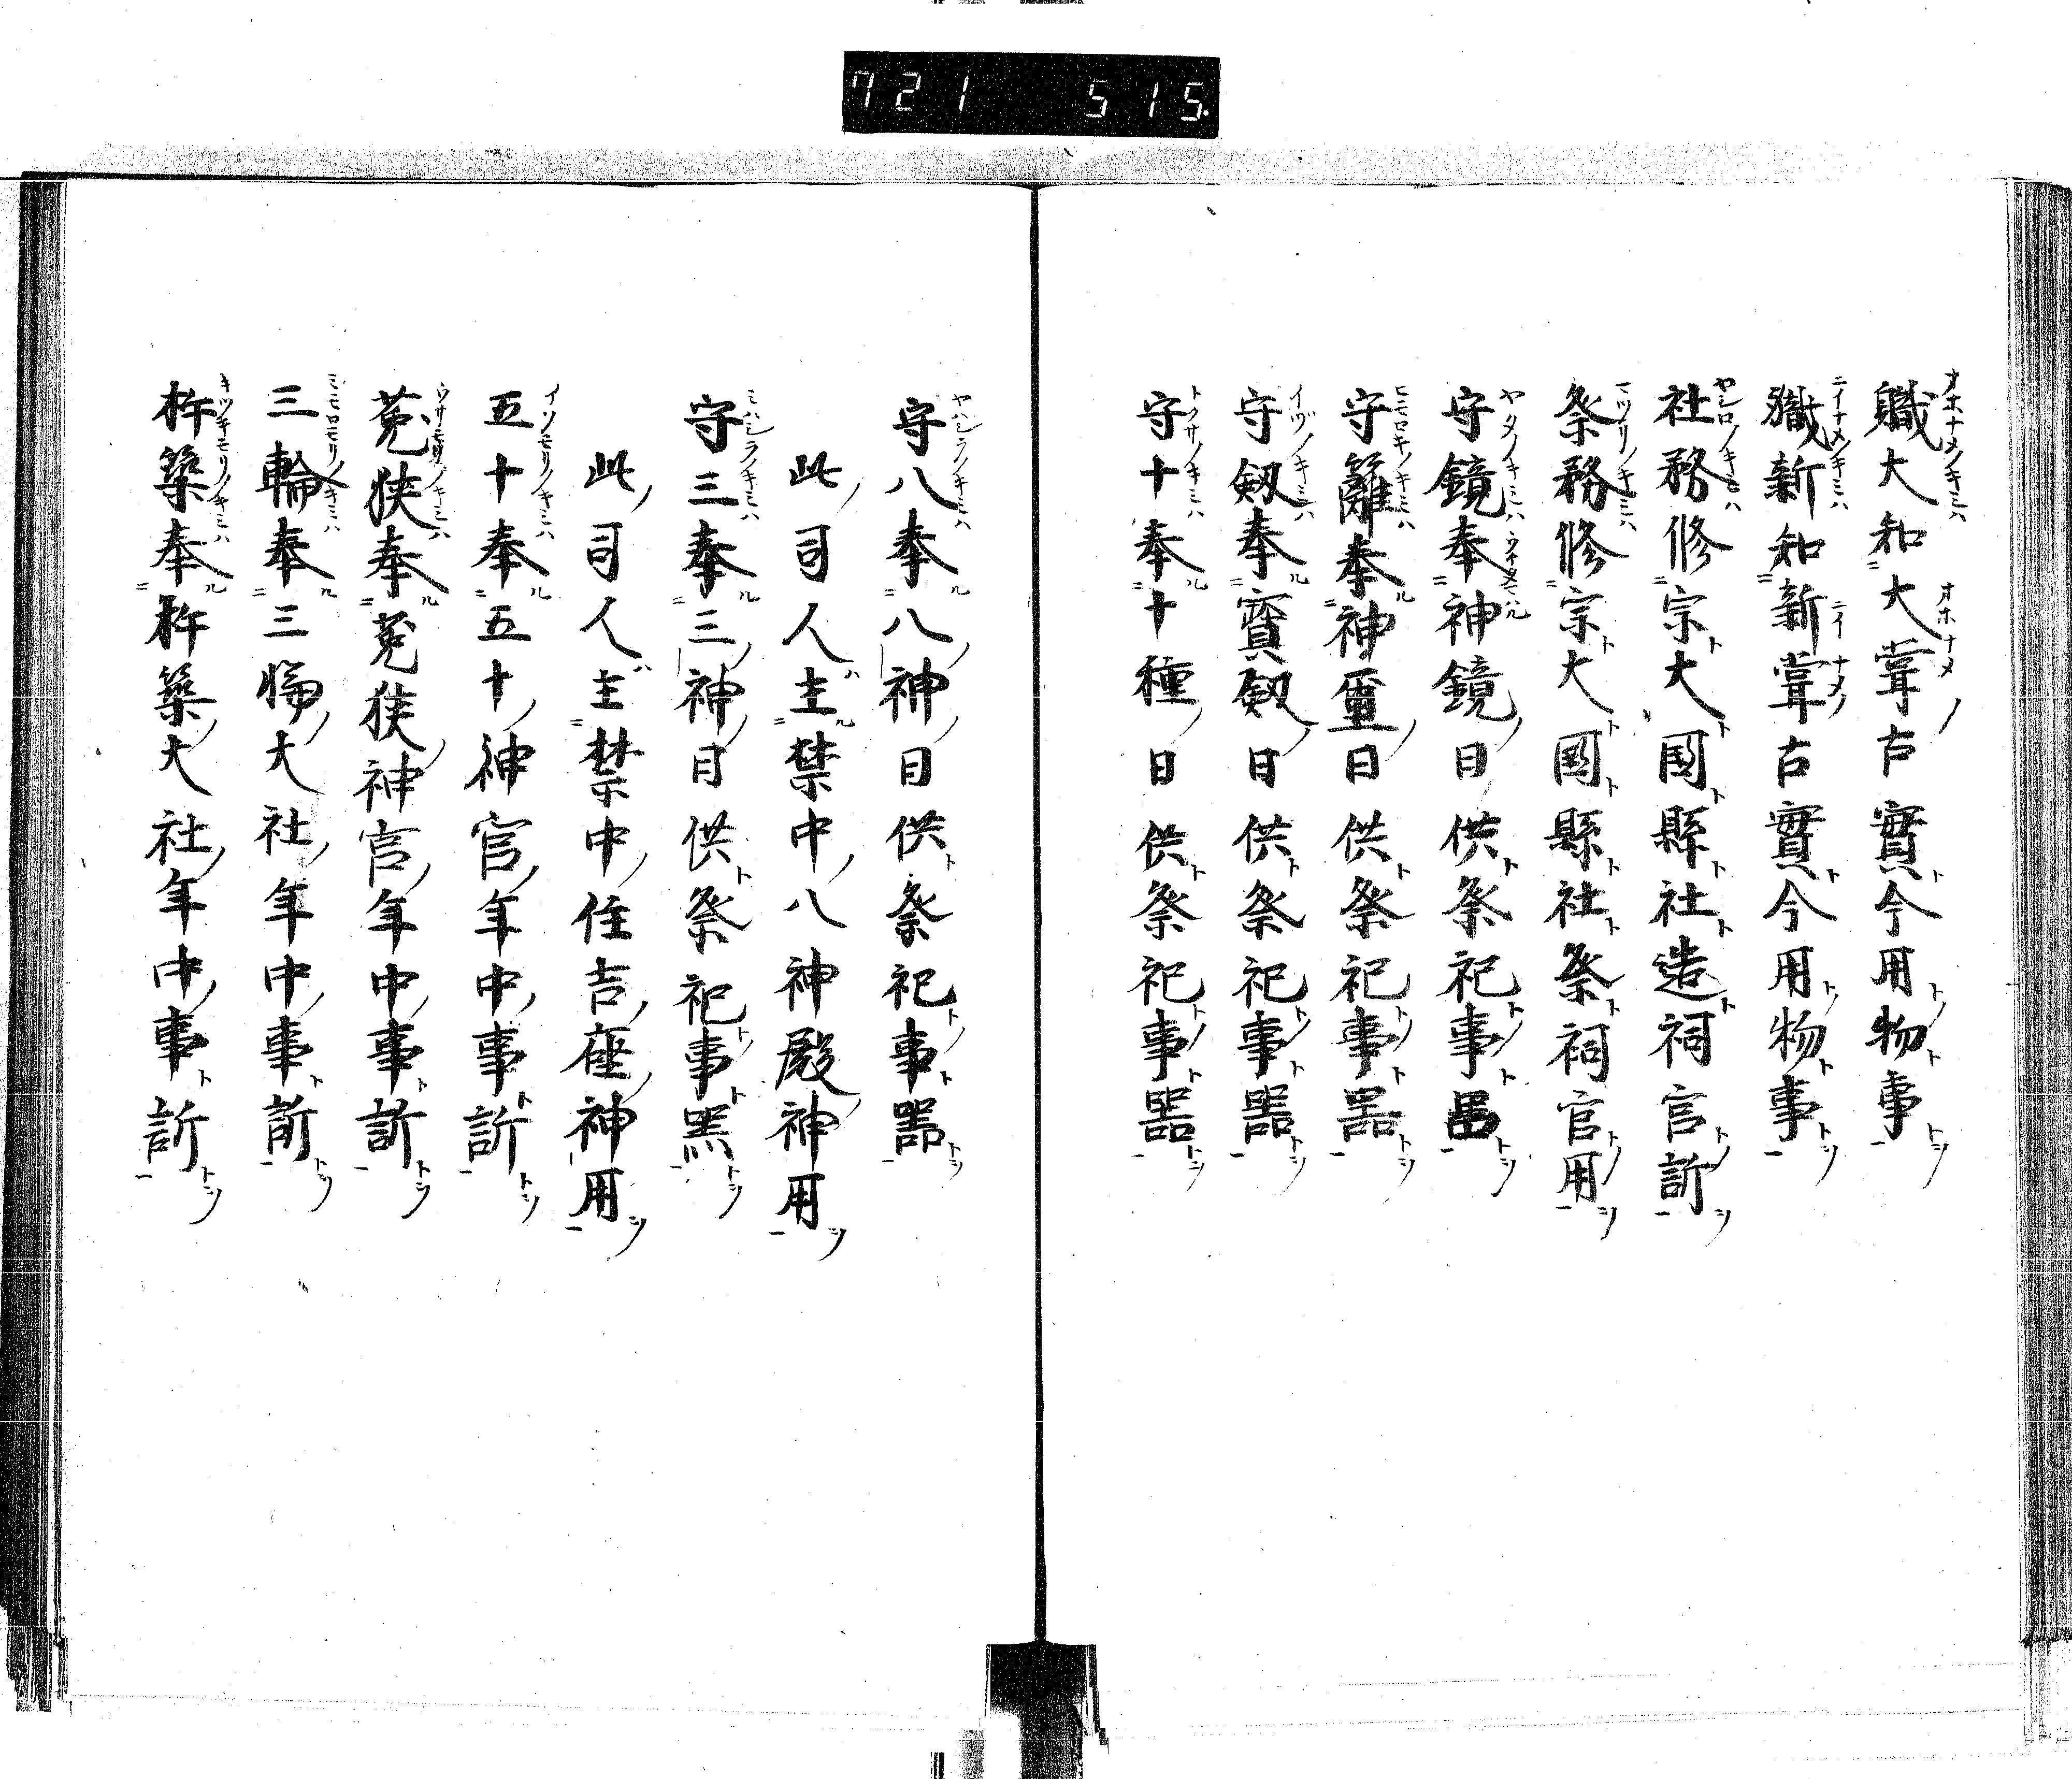 721 515.
職大知大甞古實今用物事
職新知新甞古實今用物事
社務修宗大國縣社造祠官訢
祭務修宗大國縣社祭祠官用
守鏡奉神鏡日供祭祀事噐
守籬奉神璽日供祭祀事噐
守劔奉寳劔日供祭祀事噐
守十奉十種日供祭祀事噐
守八奉八神日供祭祀事噐
此司人主禁中八神殿神用
守三奉三神日供祭祀事噐
此司人主禁中住吉座神用
五十奉五十神官年中事訢
菟狹奉菟狹神宮年中事訢
三輪奉三輪大社年中事訢
杵築奉杵築大社年中事訢